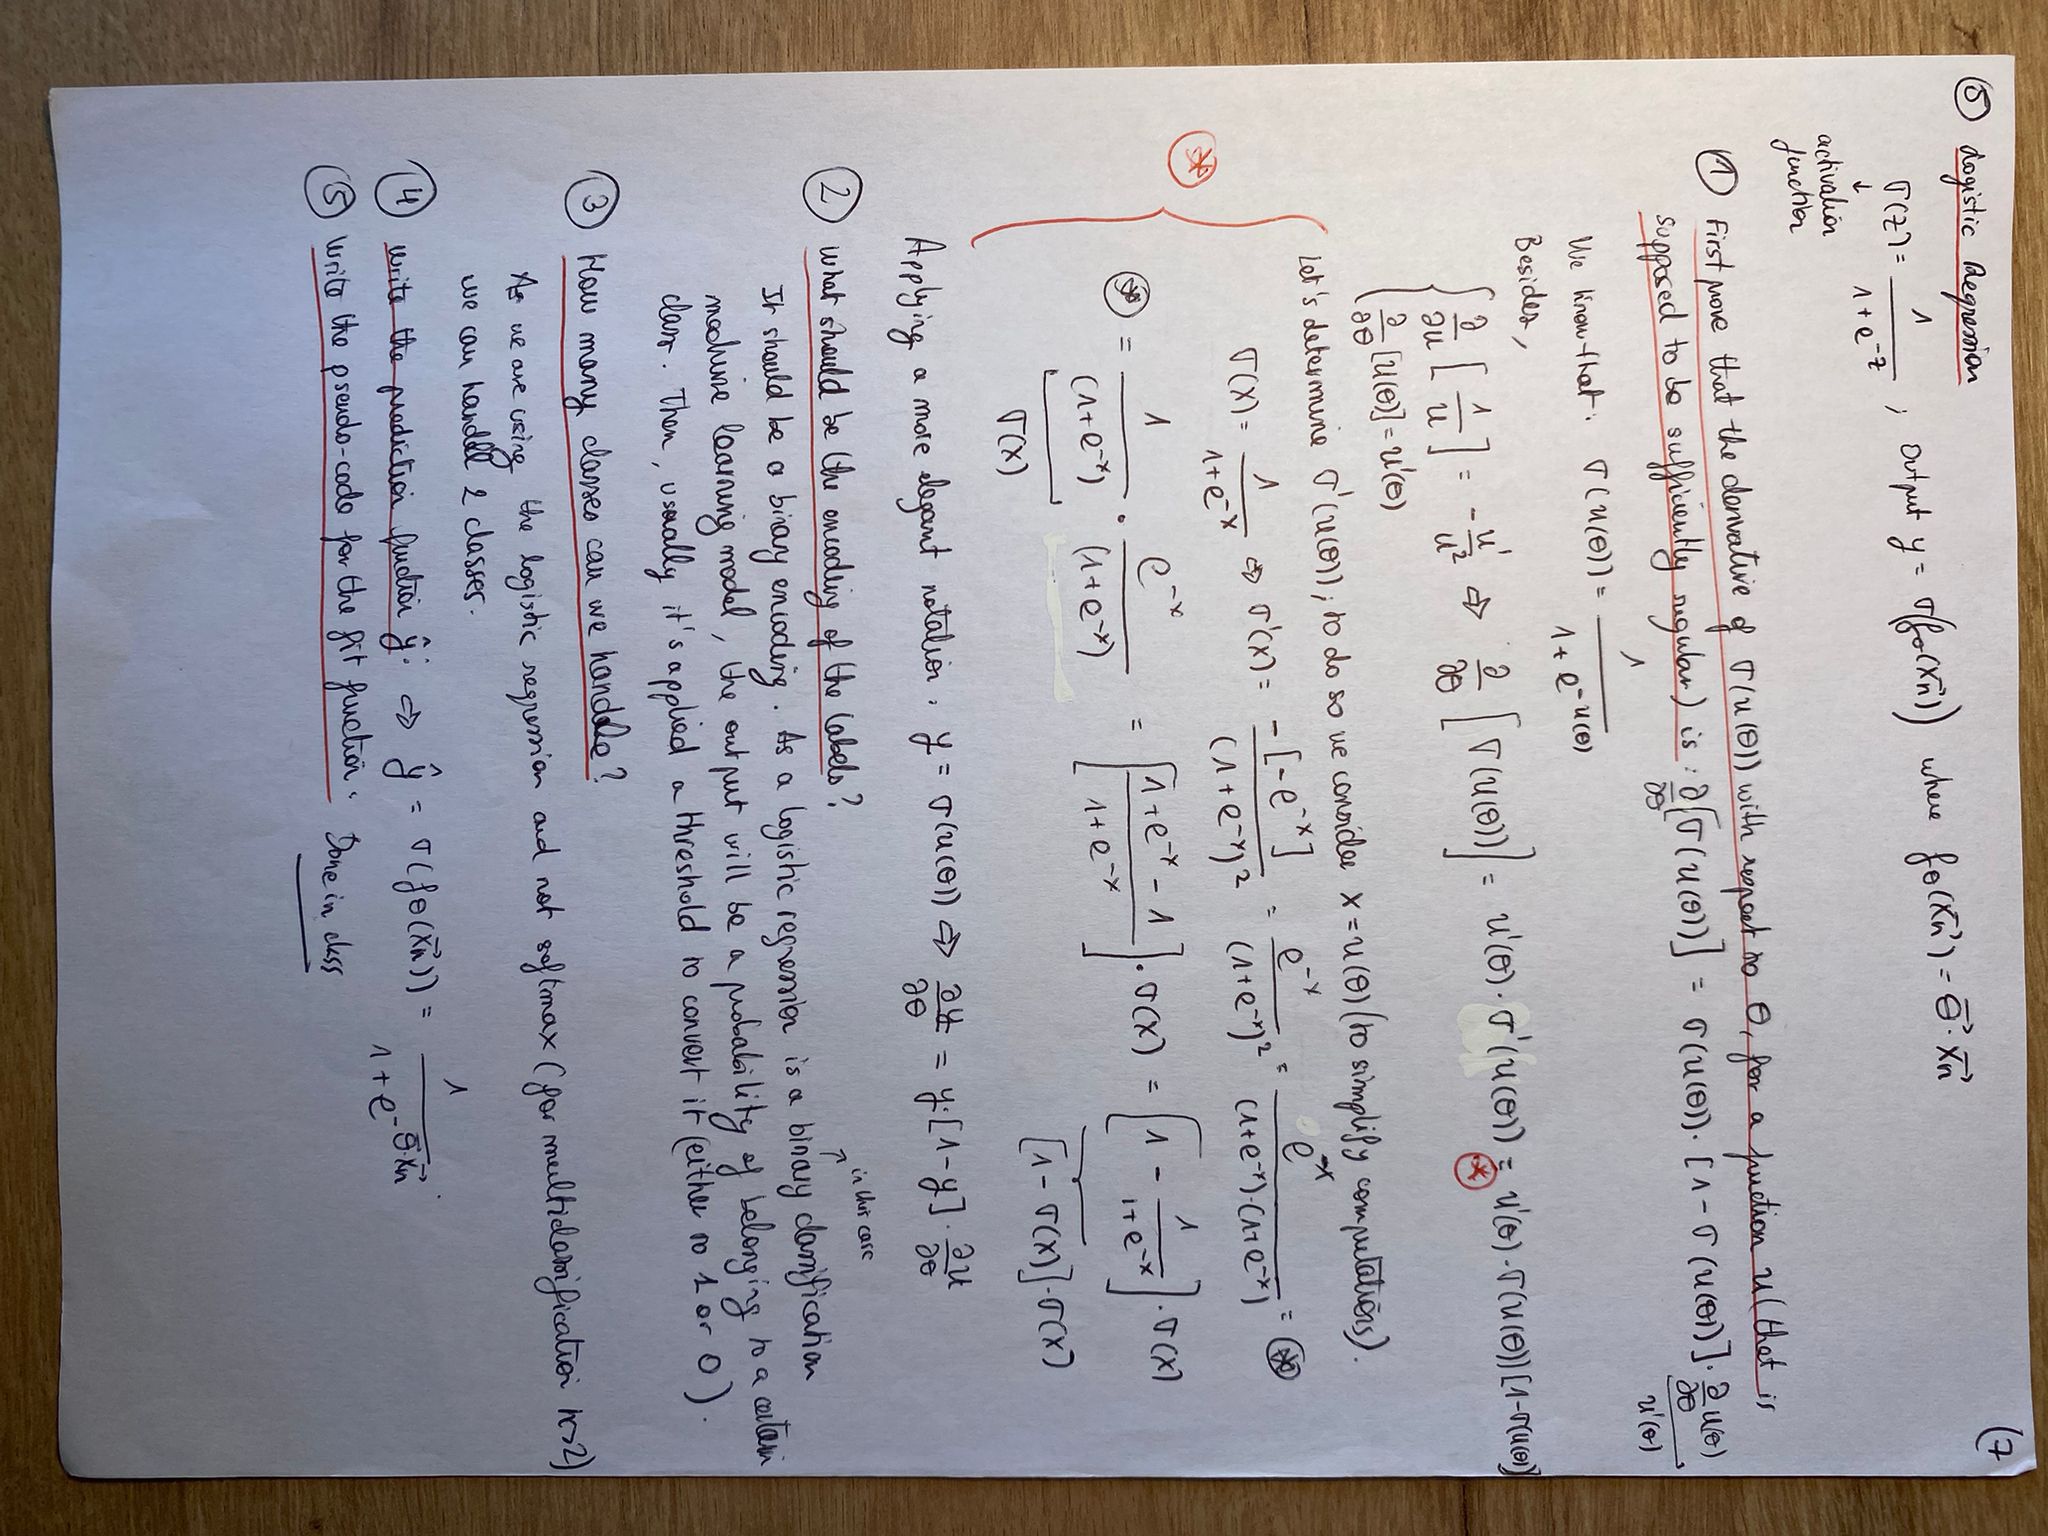 (7
⑤ Logistic Regression
σ(z) = 1 / (1 + e^-z) ; Output y = σ(fθ(x⃗n)) where fθ(x⃗n) = θ⃗ · x⃗n
↓
activation
function
① First prove that the derivative of σ(u(θ)) with respect to θ, for a fuction u (that is
supposed to be sufficiently regular) is : ∂/∂θ [σ(u(θ))] = σ(u(θ)) · [1 - σ(u(θ))] · ∂/∂θ u(θ)
u'(θ)
We know that : σ(u(θ)) = 1 / (1 + e^-u(θ))
Besides,
{ ∂/∂u [1/u] = - u'/u² ⇒ ∂/∂θ [σ(u(θ))] = u'(θ) · σ'(u(θ)) = u'(θ) · σ(u(θ)) [1 - σ(u(θ)]
⊛
∂/∂θ [u(θ)] = u'(θ)
Let's determine σ'(u(θ)), to do so we consider x = u(θ) (to simplify computations).
σ(x) = 1 / (1 + e^-x) ⇒ σ'(x) = -[-e^-x] / (1 + e^-x)² = e^-x / (1 + e^-x)² = e^-x / (1+e^-x)·(1+e^-x) = ⊛
⊛
⊛ = 1 / (1+e^-x) · e^-x / (1+e^-x) = [(1 + e^-x - 1) / (1 + e^-x)] · σ(x) = [1 - 1 / (1 + e^-x)] · σ(x)
σ(x) [1 - σ(x)] · σ(x)
Applying a more elegant notation : y = σ(u(θ)) ⇒ ∂y/∂θ = y·[1 - y] · ∂u/∂θ
in this case
↑
② What should be the encoding of the labels?
It should be a binary encoding. As a logistic regression is a binary classification
machine learning model, the output will be a probability of belonging to a certain
class. Then, usually it's applied a threshold to convert it (either to 1 or 0).
③ How many classes can we handle?
As we are using the logistic regression and not softmax (for multiclassification k>2)
we can handel 2 classes.
④ Write the prediction function ŷ: ⇒ ŷ = σ(fθ(x⃗n)) = 1 / (1 + e^-θ⃗·x⃗n)
⑤ Write the pseudo-code for the fit function. Done in class